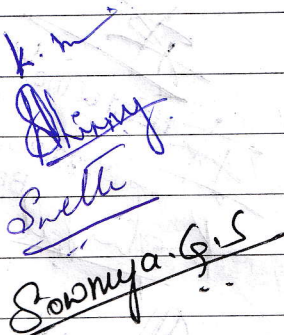 K. m
Shinny.
Swetha
Sowmya. G. S